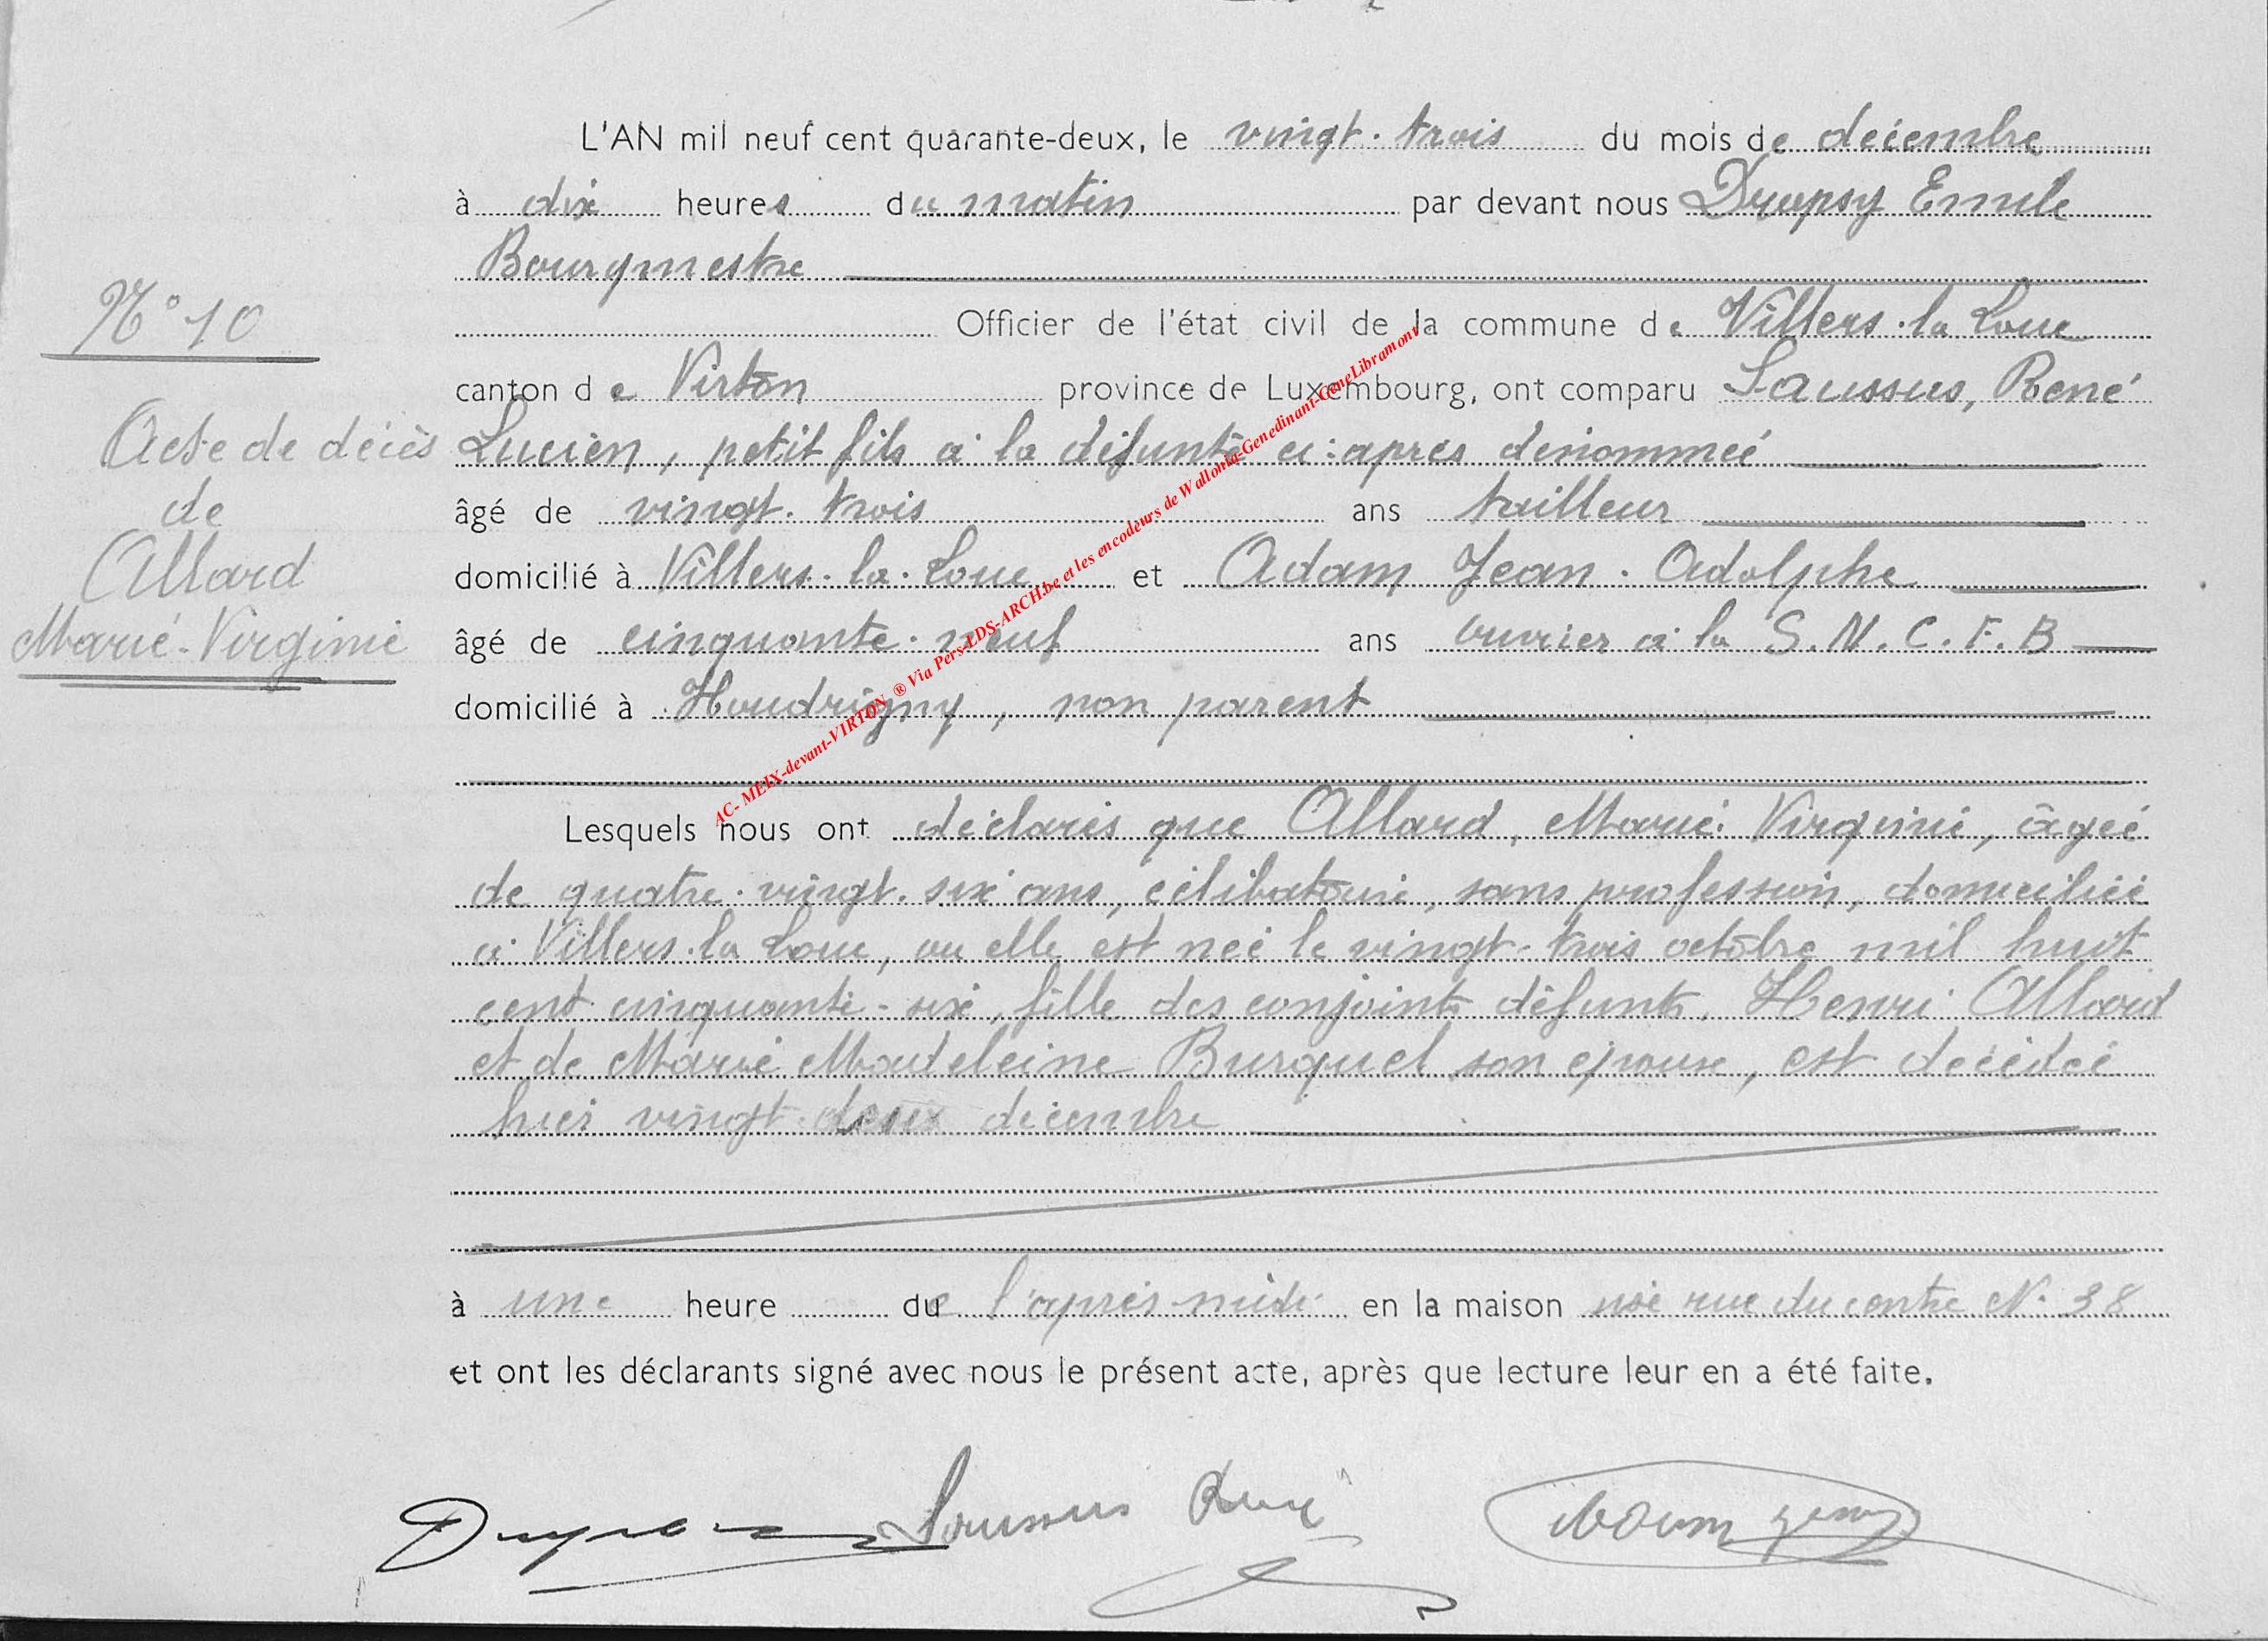 L'AN mil neuf cent quarante-deux, le vingt-trois du mois de décembre
à dix heures du matin par devant nous Drupsy Emile
Bourgmestre
N° 10
Officier de l'état civil de la commune de Villers-la-Loue
canton de Virton province de Luxembourg, ont comparu Saussus, René
Acte de décès
Lucien, petit fils à la défunte ci-après dénommée
de
âgé de vingt-trois ans tailleur
Allard
domicilié à Villers-la-Loue et Adam Jean-Adolphe
Marie-Virginie
âgé de cinquante-neuf ans ouvrier à la S.N.C.F.B
domicilié à Houdrigny, non parent
AC- MEIX-devant-VIRTON ® Via Pers-LDS-ARCH.be et les encodeurs de Wallonia-Genedinant-GeneLibramont
Lesquels nous ont déclarés que Allard, Marie-Virginie, âgée
de quatre-vingt-six ans, célibataire, sans profession, domiciliée
à Villers-la-Loue, ou elle est née le vingt-trois octobre mil huit
cent cinquante-six, fille des conjoints défunts, Henri Allard
et de Marie Madeleine Burquel son épouse, est décédée
hier vingt-deux décembre
à une heure de l'après-midi en la maison sise rue du centre N° 38
et ont les déclarants signé avec nous le présent acte, après que lecture leur en a été faite.
Saussus René